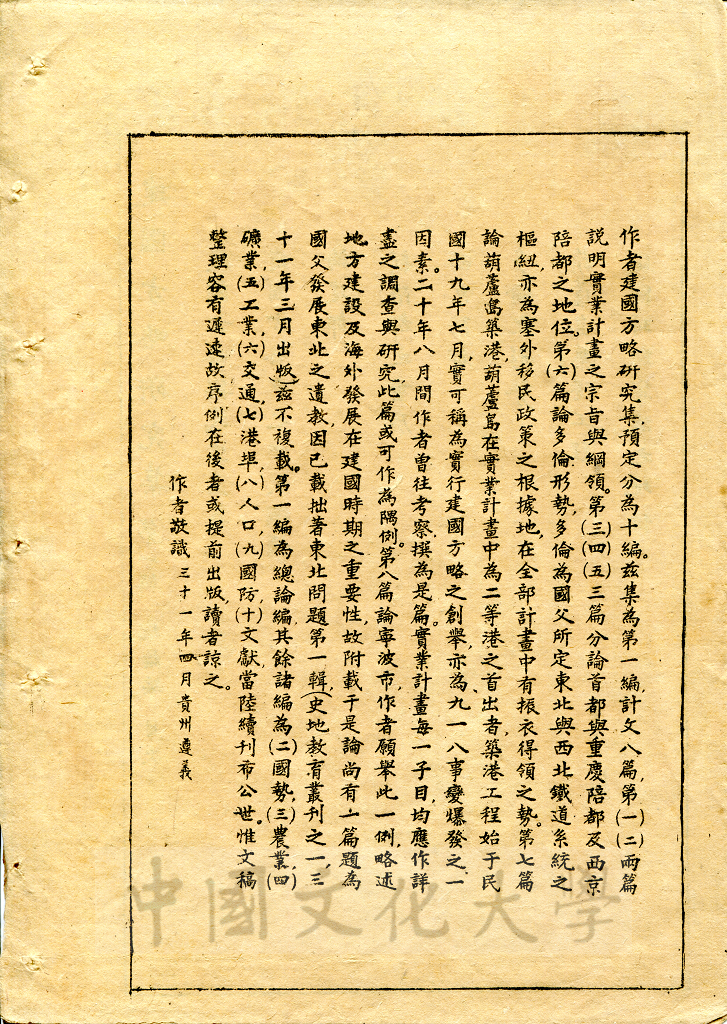 作者建國方略研究集，預定分為十編。茲集為第一編，計文八篇，第(一)(二)兩篇
說明實業計畫之宗旨與綱領。第(三)(四)(五)三篇分論首都與重慶陪都及西京
陪都之地位。第(六)篇論多倫形勢，多倫為國父所定東北與西北鐵道系統之
樞紐，亦為塞外移民政策之根據地，在全部計畫中有振衣得領之勢。第七篇
論葫蘆島築港，葫蘆島在實業計畫中為二等港之首出者，築港工程始于民
國十九年七月，實可稱為實行建國方略之創舉，亦為九一八事變爆發之一
因素。二十年八月間作者曾往考察，撰為是篇。實業計畫每一子目，均應作詳
盡之調查與研究，此篇或可作為隅例。第八篇論寧波市，作者願舉此一例，略述
地方建設及海外發展在建國時期之重要性，故附載于是論尚有一篇題為
國父發展東北之遺教，因已載拙著東北問題第一輯，(史地教育叢刊之一，三
十一年三月出版)茲不複載。第一編為總論編，其餘諸編為(二)國勢，(三)農業，(四)
礦業，(五)工業，(六)交通，(七)港埠，(八)人口，(九)國防，(十)文獻，當陸續刊布公世。惟文稿
整理容有遲速，故序例在後者或提前出版，讀者諒之。
作者敬識 三十一年四月貴州遵義
中國文化大學